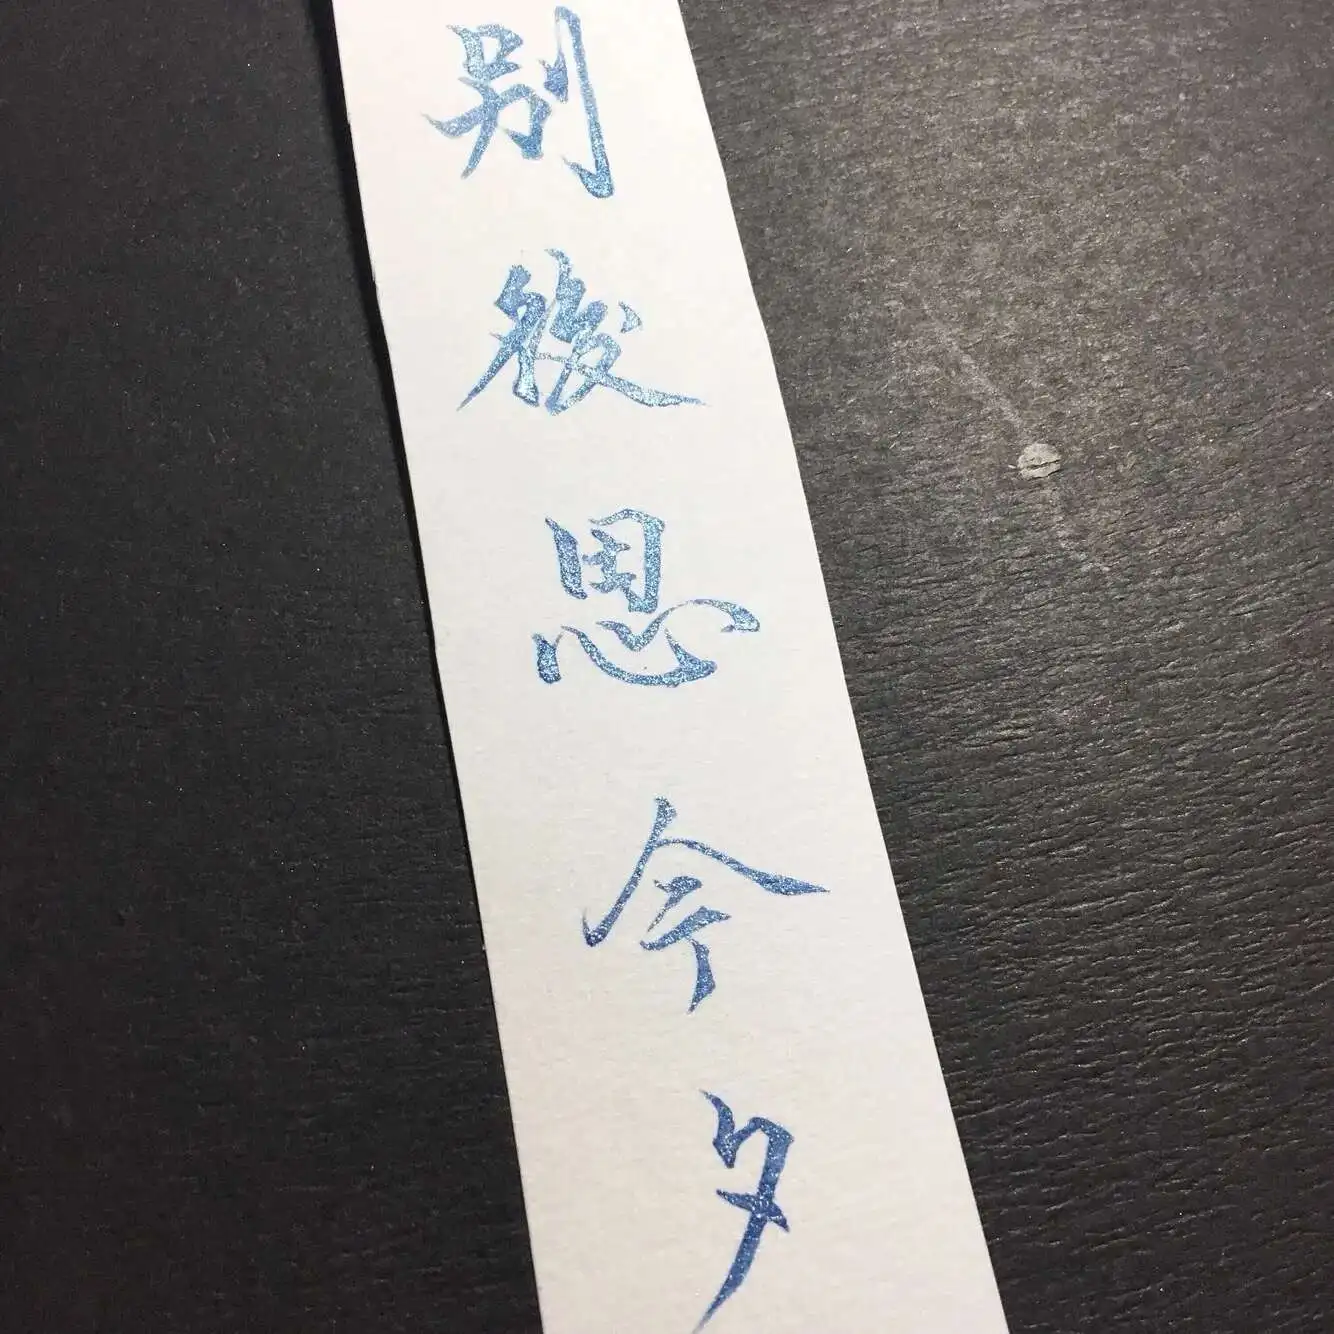 别後思今夕